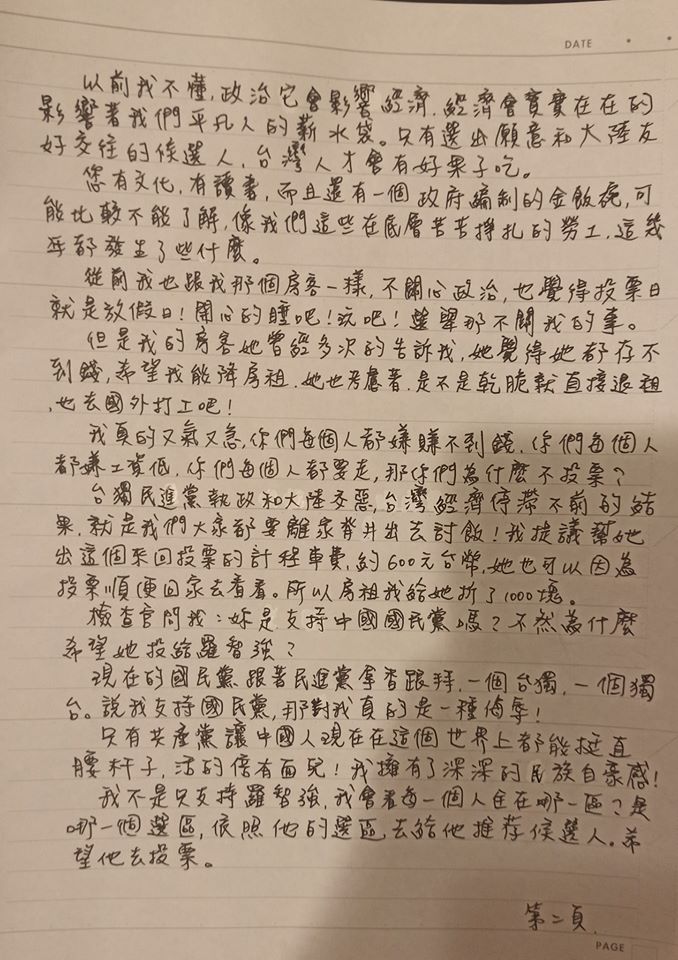 DATE
以前我不懂，政治它會影響經濟，經濟會實實在在的
影響著我們平凡人的薪水袋。只有選出願意和大陸友
好交往的候選人，台灣人才會有好果子吃。
您有文化，有讀書，而且還有一個政府編制的金飯碗，可
能比較不能了解，像我們這些在底層苦苦掙扎的勞工，這幾
年都發生了些什麼。
從前我也跟我那個房客一樣，不關心政治，也覺得投票日
就是放假日！開心的睡吧！玩吧！選舉那不關我的事。
但是我的房客她曾經多次的告訴我，她覺得她都存不
到錢，希望我能降房租，她也考慮著，是不是乾脆就直接退租
，也去國外打工吧！
我真的又氣又急，你們每個人都嫌賺不到錢，你們每個人
都嫌工資低，你們每個人都要走，那你們為什麼不投票？
台獨民進黨執政和大陸交惡，台灣經濟停滯不前的結
果，就是我們大家都要離鄉背井出去討飯！我提議幫她
出這個來回投票的計程車費，約600元台幣，她也可以因為
投票順便回家去看看。所以房租我給她折了1000塊。
檢查官問我：妳是支持中國國民黨嗎？不然為什麼
希望她投給羅智強？
現在的國民黨跟著民進黨拿香跟拜，一個台獨，一個獨
台。說我支持國民黨，那對我真的是一種侮辱！
只有共產黨讓中國人現在在這個世界上都能挺直
腰杆子，活的倍有面兒！我擁有了深深的民族自豪感！
我不是只支持羅智強，我會看每一個人住在哪一區？是
哪一個選區，依照他的選區，去給他推荐候選人。希
望他去投票。
第二頁.
PAGE